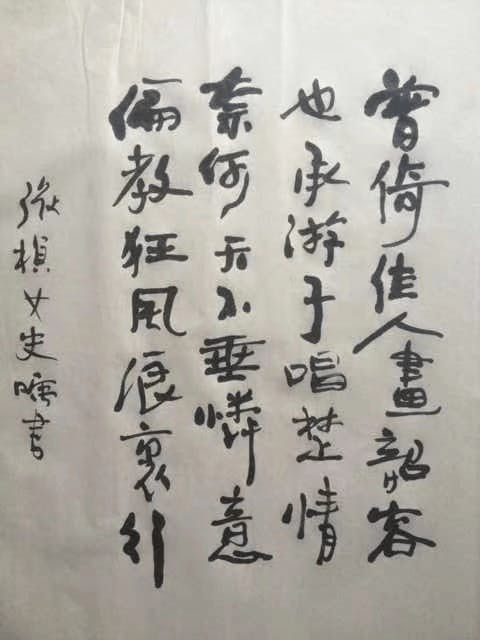 曾倚佳人畫韶容
也承游子唱楚情
奈何天不垂憐意
偏教狂風浪裏行
張楨女史囑書